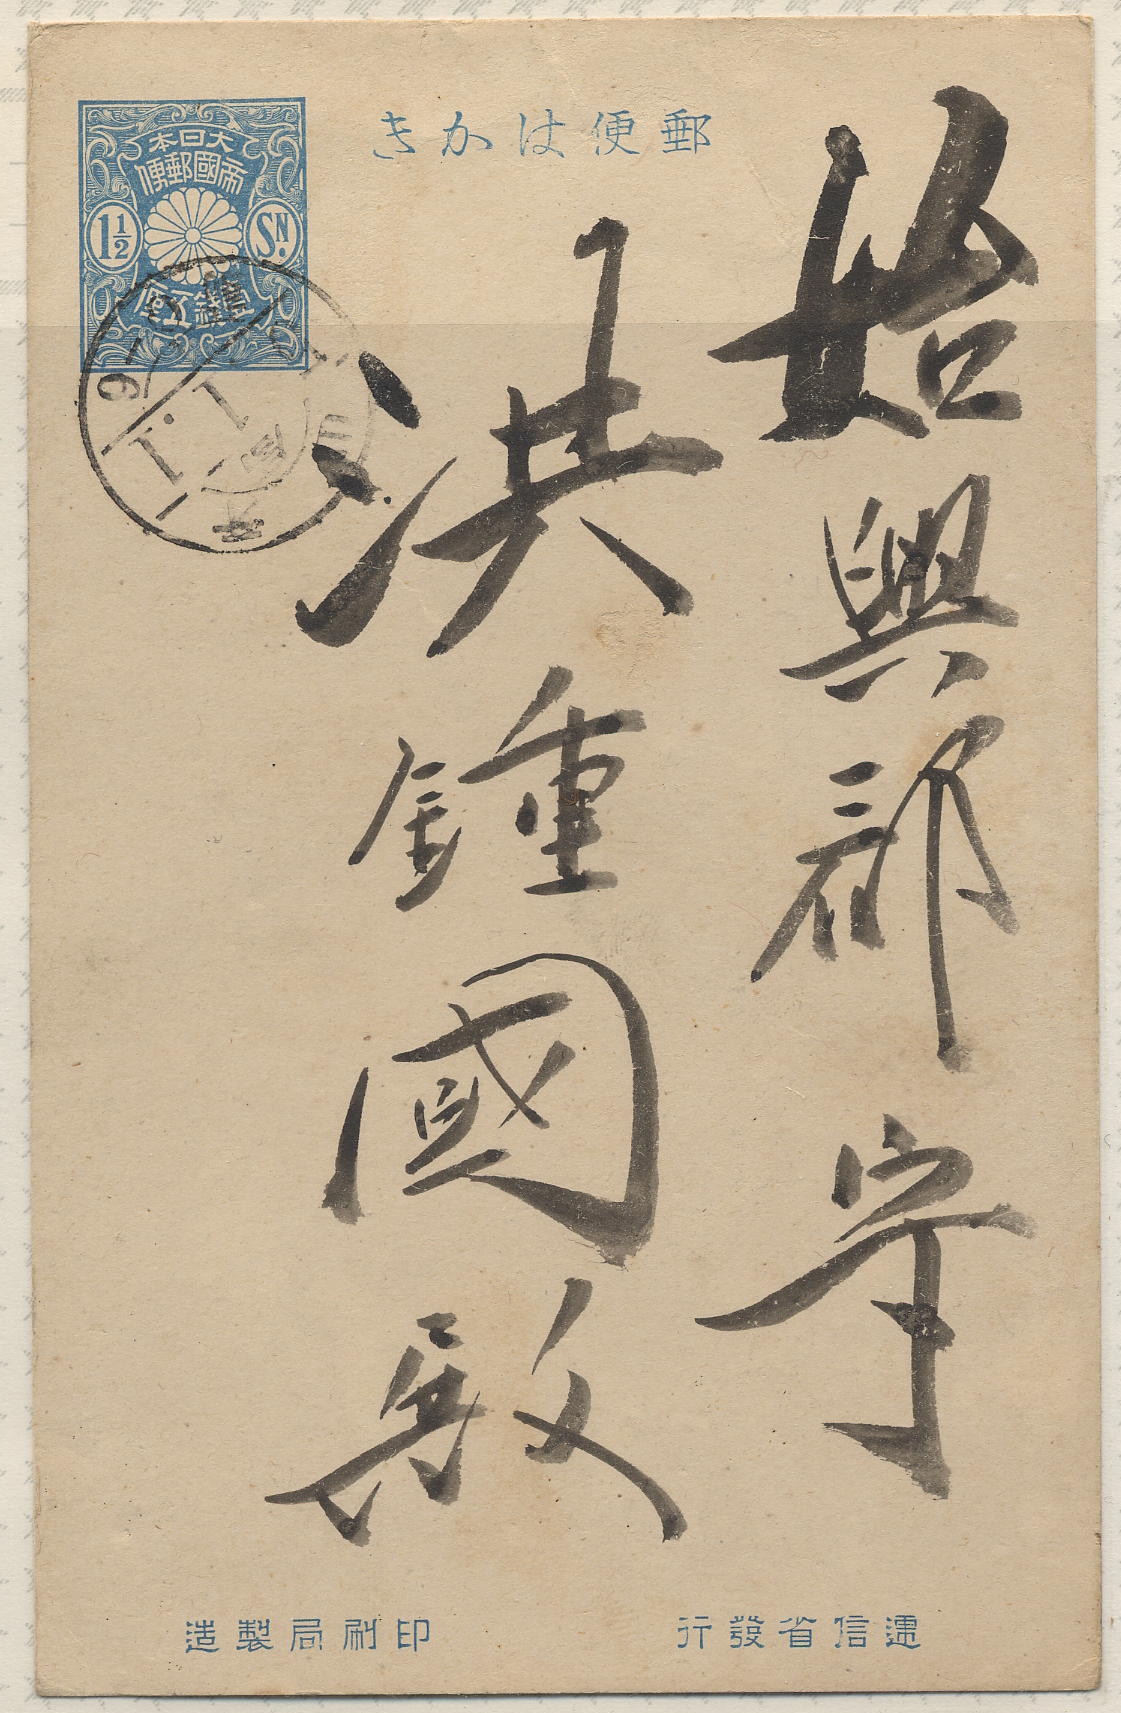 郵便はかき
大日本
帝國郵便
1½ SN.
壹錢五厘
始興郡守
洪鍾國殿
遞信省發行
印刷局製造